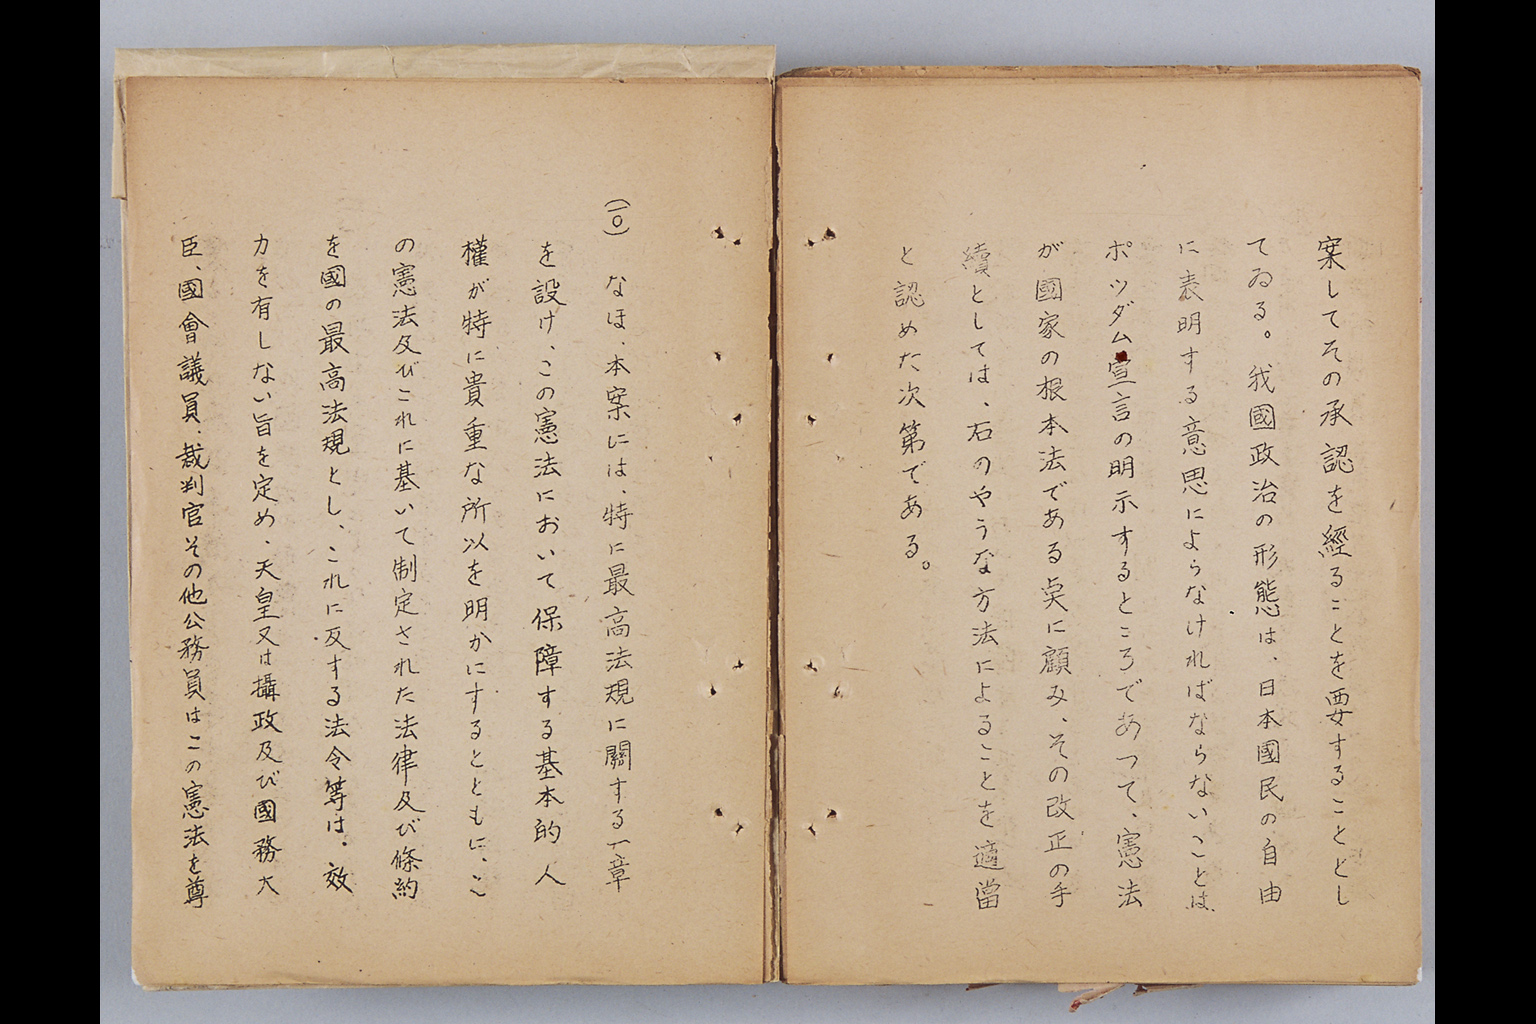 案してその承認を經ることを要することとし
てゐる。我國政治の形態は、日本國民の自由
に表明する意思によらなければならないことは、
ポツダム宣言の明示するところであつて、憲法
が國家の根本法である点に顧み、その改正の手
續としては、右のやうな方法によることを適當
と認めた次第である。
(一〇) なほ、本案には、特に最高法規に關する一章
を設け、この憲法において保障する基本的人
權が特に貴重な所以を明かにするとともに、こ
の憲法及びこれに基いて制定された法律及び條約
を國の最高法規とし、これに反する法令等は、效
力を有しない旨を定め、天皇又は攝政及び國務大
臣、國會議員、裁判官その他公務員はこの憲法を尊